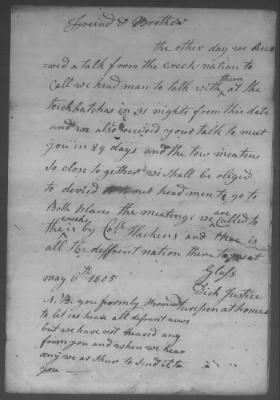 Freind & Brother
the other day we Rece
=ved a talk from the creek nation to
Call we head man to talk with them at the
tuckbatchas in 31 nights from this date
and we also received your talk to meet
you in 29 days and the tow meatens
so close to gether we shall be oliged
to devied our head men to go to
Both places the meatings we are Called to
the creeks is by Coll Hackens and there is
all the deffrint nation there to meet
Glass
may 6th 1805
Dick Justice
N. B. you formly promised
turpen at home
to let us hear all defrent news
but we have not heared any
from you and when we hear
any we ar shure to send it to
you